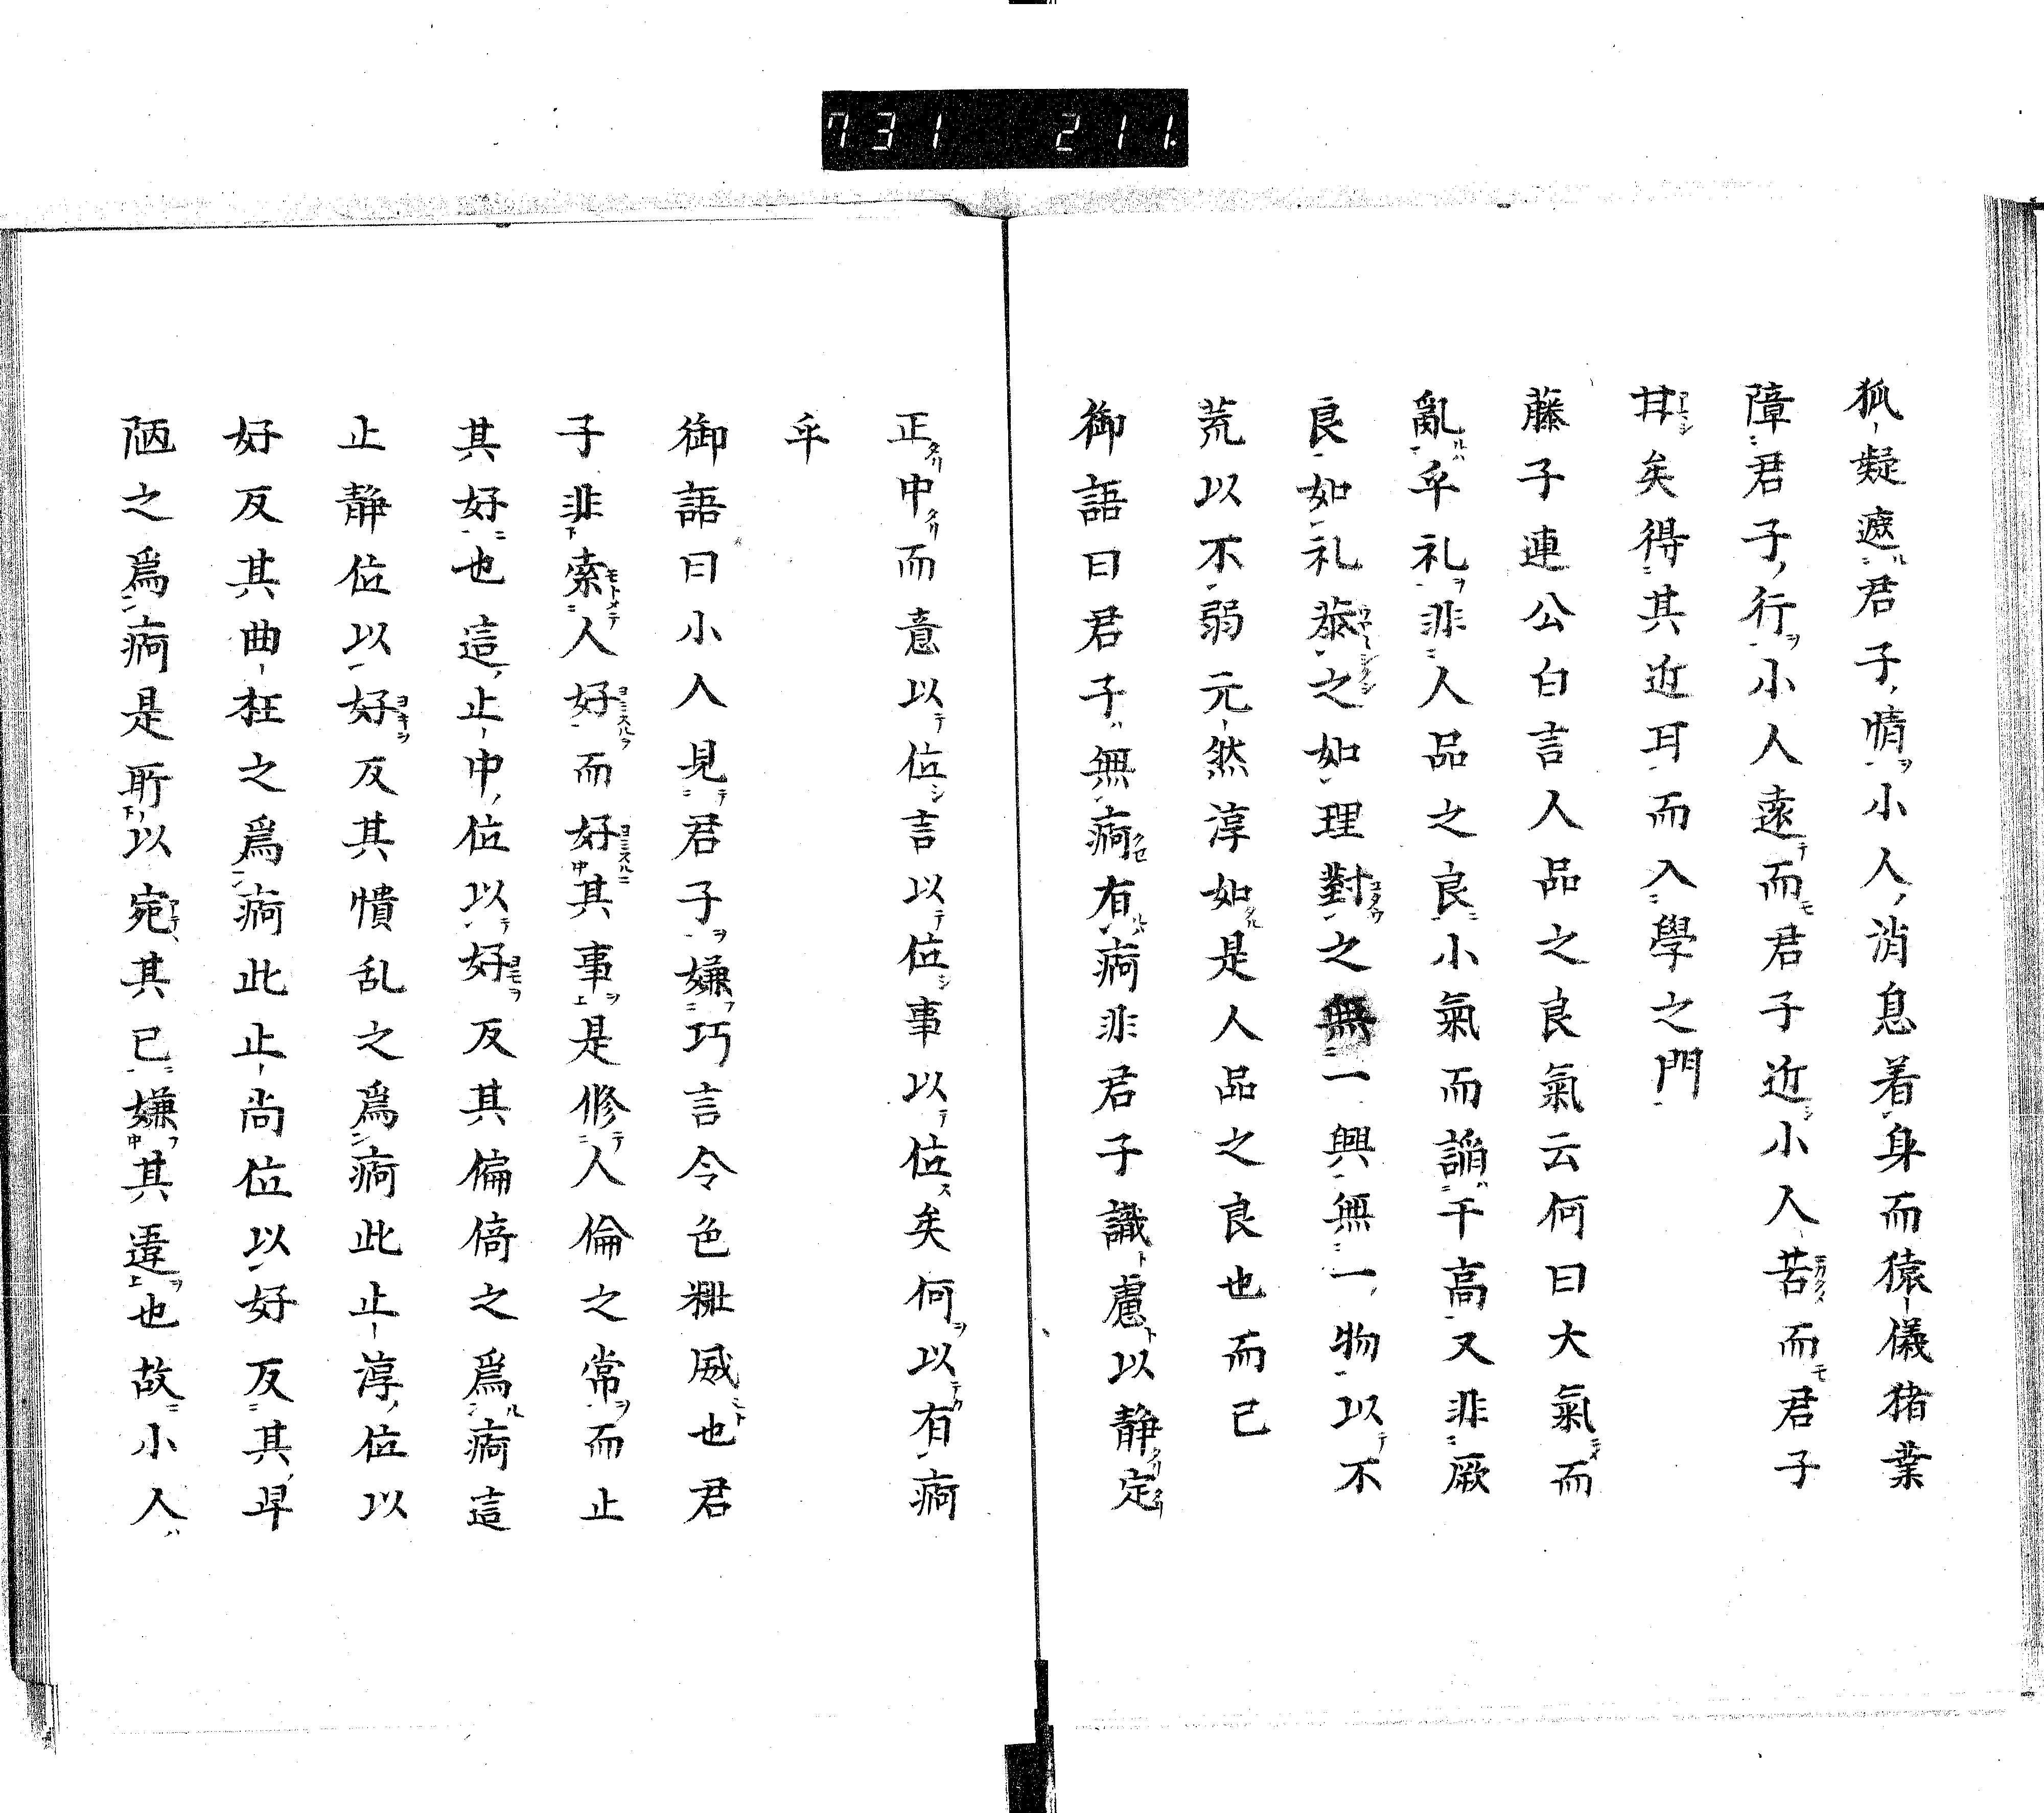 731 211.
狐疑遮君子情小人消息着身而猿儀猪業
障君子行小人遠而君子近小人苦而君子
甘矣得其近耳而入學之門
藤子連公白言人品之良氣云何曰大氣而
亂乎礼非人品之良小氣而諂干高又非厥
良如礼恭之如理對之無一興無一物以不
荒以不弱元然淳如是人品之良也而已
御語曰君子無痾有痾非君子識慮以静定
正中而意以位言以位事以位矣何以有痾
乎
御語曰小人見君子嫌巧言令色粃威也君
子非索人好而好其事是修人倫之常而止
其好也這止中位以好反其偏倚之爲痾這
止静位以好反其憒乱之爲痾此止淳位以
好反其曲枉之爲痾此止尚位以好反其卑
陋之爲痾是所以宛其己嫌其違也故小人